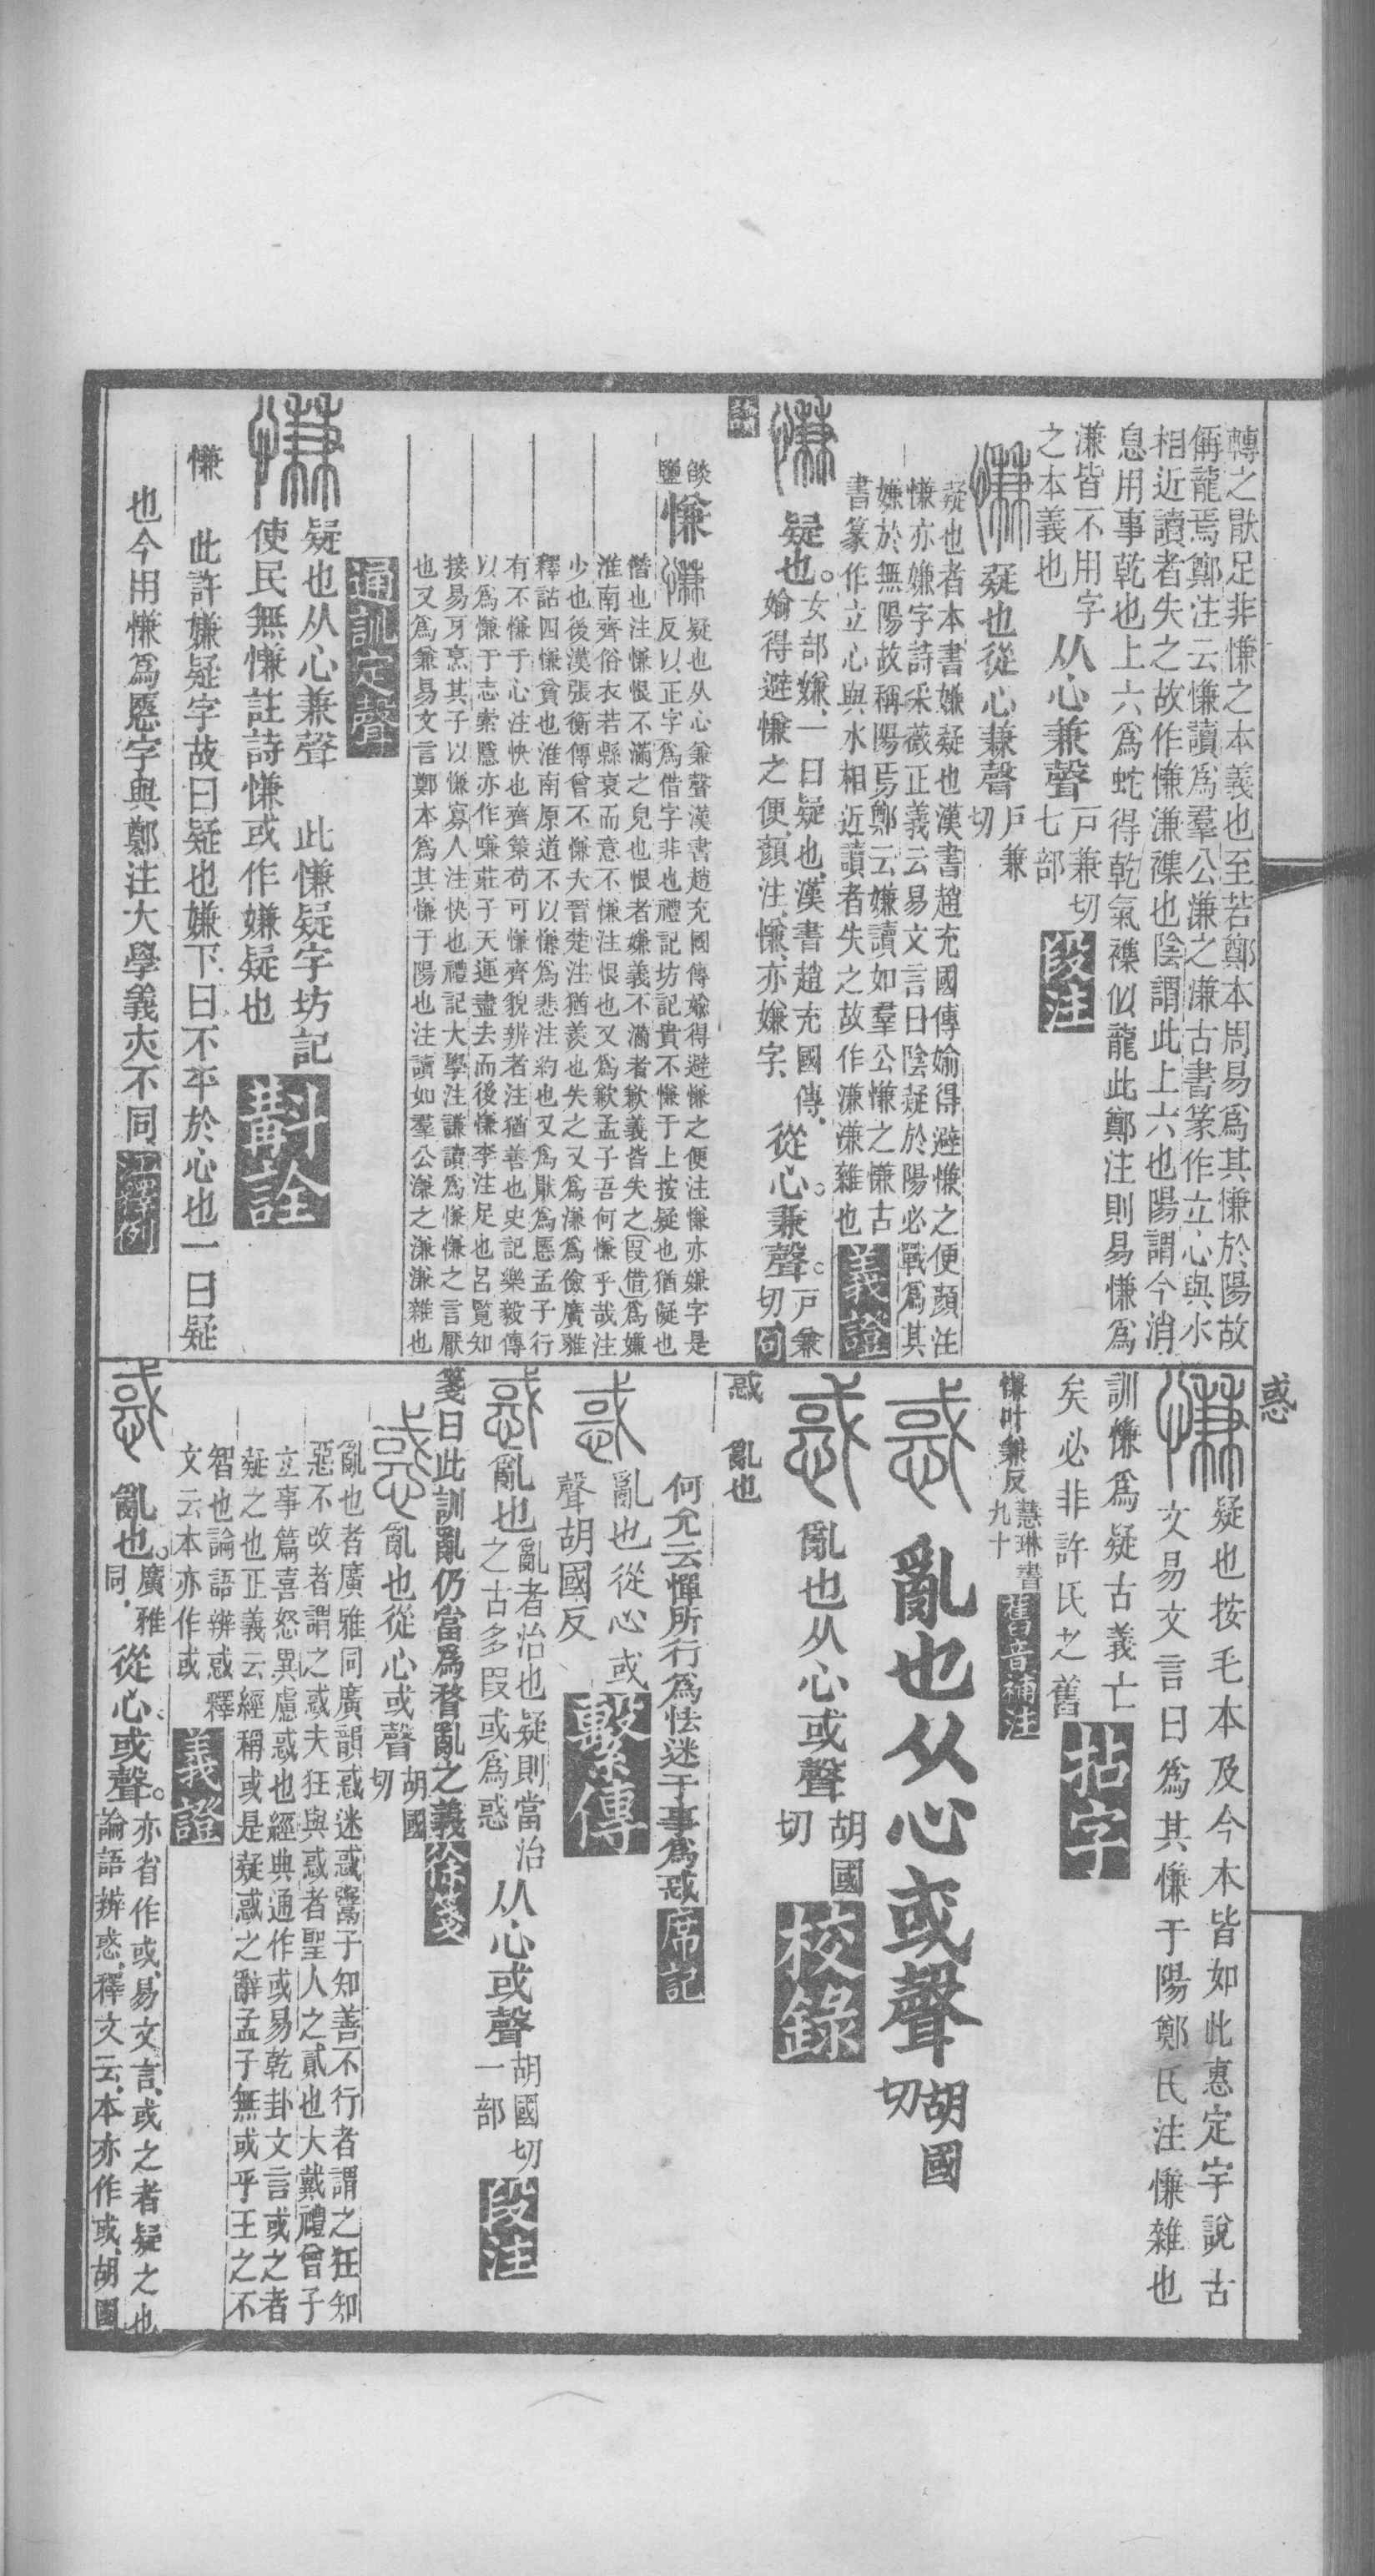 轉之猒足非慊之本義也至若鄭本周易爲其慊於陽故
偁龍焉鄭注云慊讀爲羣公溓之溓古書篆作立心與水
相近讀者失之故作慊溓襍也陰謂此上六也陽謂今消
息用事乾也上六爲蛇得乾氣襍似龍此鄭注則易慊爲
溓皆不用字
之本義也
从心兼聲
戸兼切
七部
段注
疑也從心兼聲
戸兼
切
疑也者本書嫌疑也漢書趙充國傳媮得避慊之便顏注
慊亦嫌字詩采薇正義云易文言曰陰疑於陽必戰爲其
嫌於無陽故稱陽焉鄭云嫌讀如羣公慊之慊古
書篆作立心與水相近讀者失之故作溓溓雜也
義證
疑也。
女部嫌、一曰疑也、漢書趙充國傳、
媮得避慊之便、顏注、慊、亦嫌字、
從心。兼聲。
戸兼
切
句
讀
燄
鹽
慊
疑也从心兼聲漢書趙充國傳媮得避慊之便注慊亦嫌字是
反以正字爲借字非也禮記坊記貴不慊于上按疑也猶疑也
僭也注慊恨不滿之皃也恨者嫌義不滿者歉義皆失之叚借爲嫌
淮南齊俗衣若縣衰而意不慊注恨也又爲歉孟子吾何慊乎哉注
少也後漢張衡傳曾不慊夫晉楚注猶羨也失之又爲溓爲儉廣雅
釋詁四慊貧也淮南原道不以慊爲悲注約也又爲猒爲愿孟子行
有不慊于心注快也齊策苟可慊齊貌辨者注猶善也史記樂毅傳
以爲慊于志索隱亦作嗛莊子天運盡去而後慊李注足也呂覽知
接易牙烹其子以慊寡人注快也禮記大學注謙讀爲慊慊之言厭
也又爲兼易文言鄭本爲其慊于陽也注讀如羣公溓之溓溓雜也
通訓定聲
疑也从心兼聲　此慊疑字坊記
使民無慊註詩慊或作嫌疑也
斠詮
慊　此許嫌疑字故曰疑也嫌下曰不平於心也一曰疑
也今用慊爲愿字與鄭注大學義夾不同
釋例
惑
疑也按毛本及今本皆如此惠定宇說古
文易文言曰爲其慊于陽鄭氏注慊雜也
訓慊爲疑古義亡
矣必非許氏之舊
拈字
慊叶兼反
慧琳書
九十
舊音補注
亂也从心或聲
胡國
切
亂也从心或聲
胡國
切
校錄
惑　亂也
何允云憚所行爲怯迷于事爲惑
席記
亂也從心或
聲胡國反
繫傳
亂也
亂者治也疑則當治
之古多叚或爲惑
从心或聲
胡國切
一部
段注
箋曰此訓亂仍當爲瞀亂之義
徐箋
亂也從心或聲
胡國
切
亂也者廣雅同廣韻惑迷惑鬻子知善不行者謂之狂知
惡不改者謂之惑夫狂與惑者聖人之貳也大戴禮曾子
立事篇喜怒異慮惑也經典通作或易乾卦文言或之者
疑之也正義云經稱或是疑惑之辭孟子無或乎王之不
智也論語辨惑釋
文云本亦作或
義證
亂也。
廣雅
同.
從心、或聲。
亦省作或、易文言、或之者疑之也
論語辨惑、釋文云、本亦作或、胡國